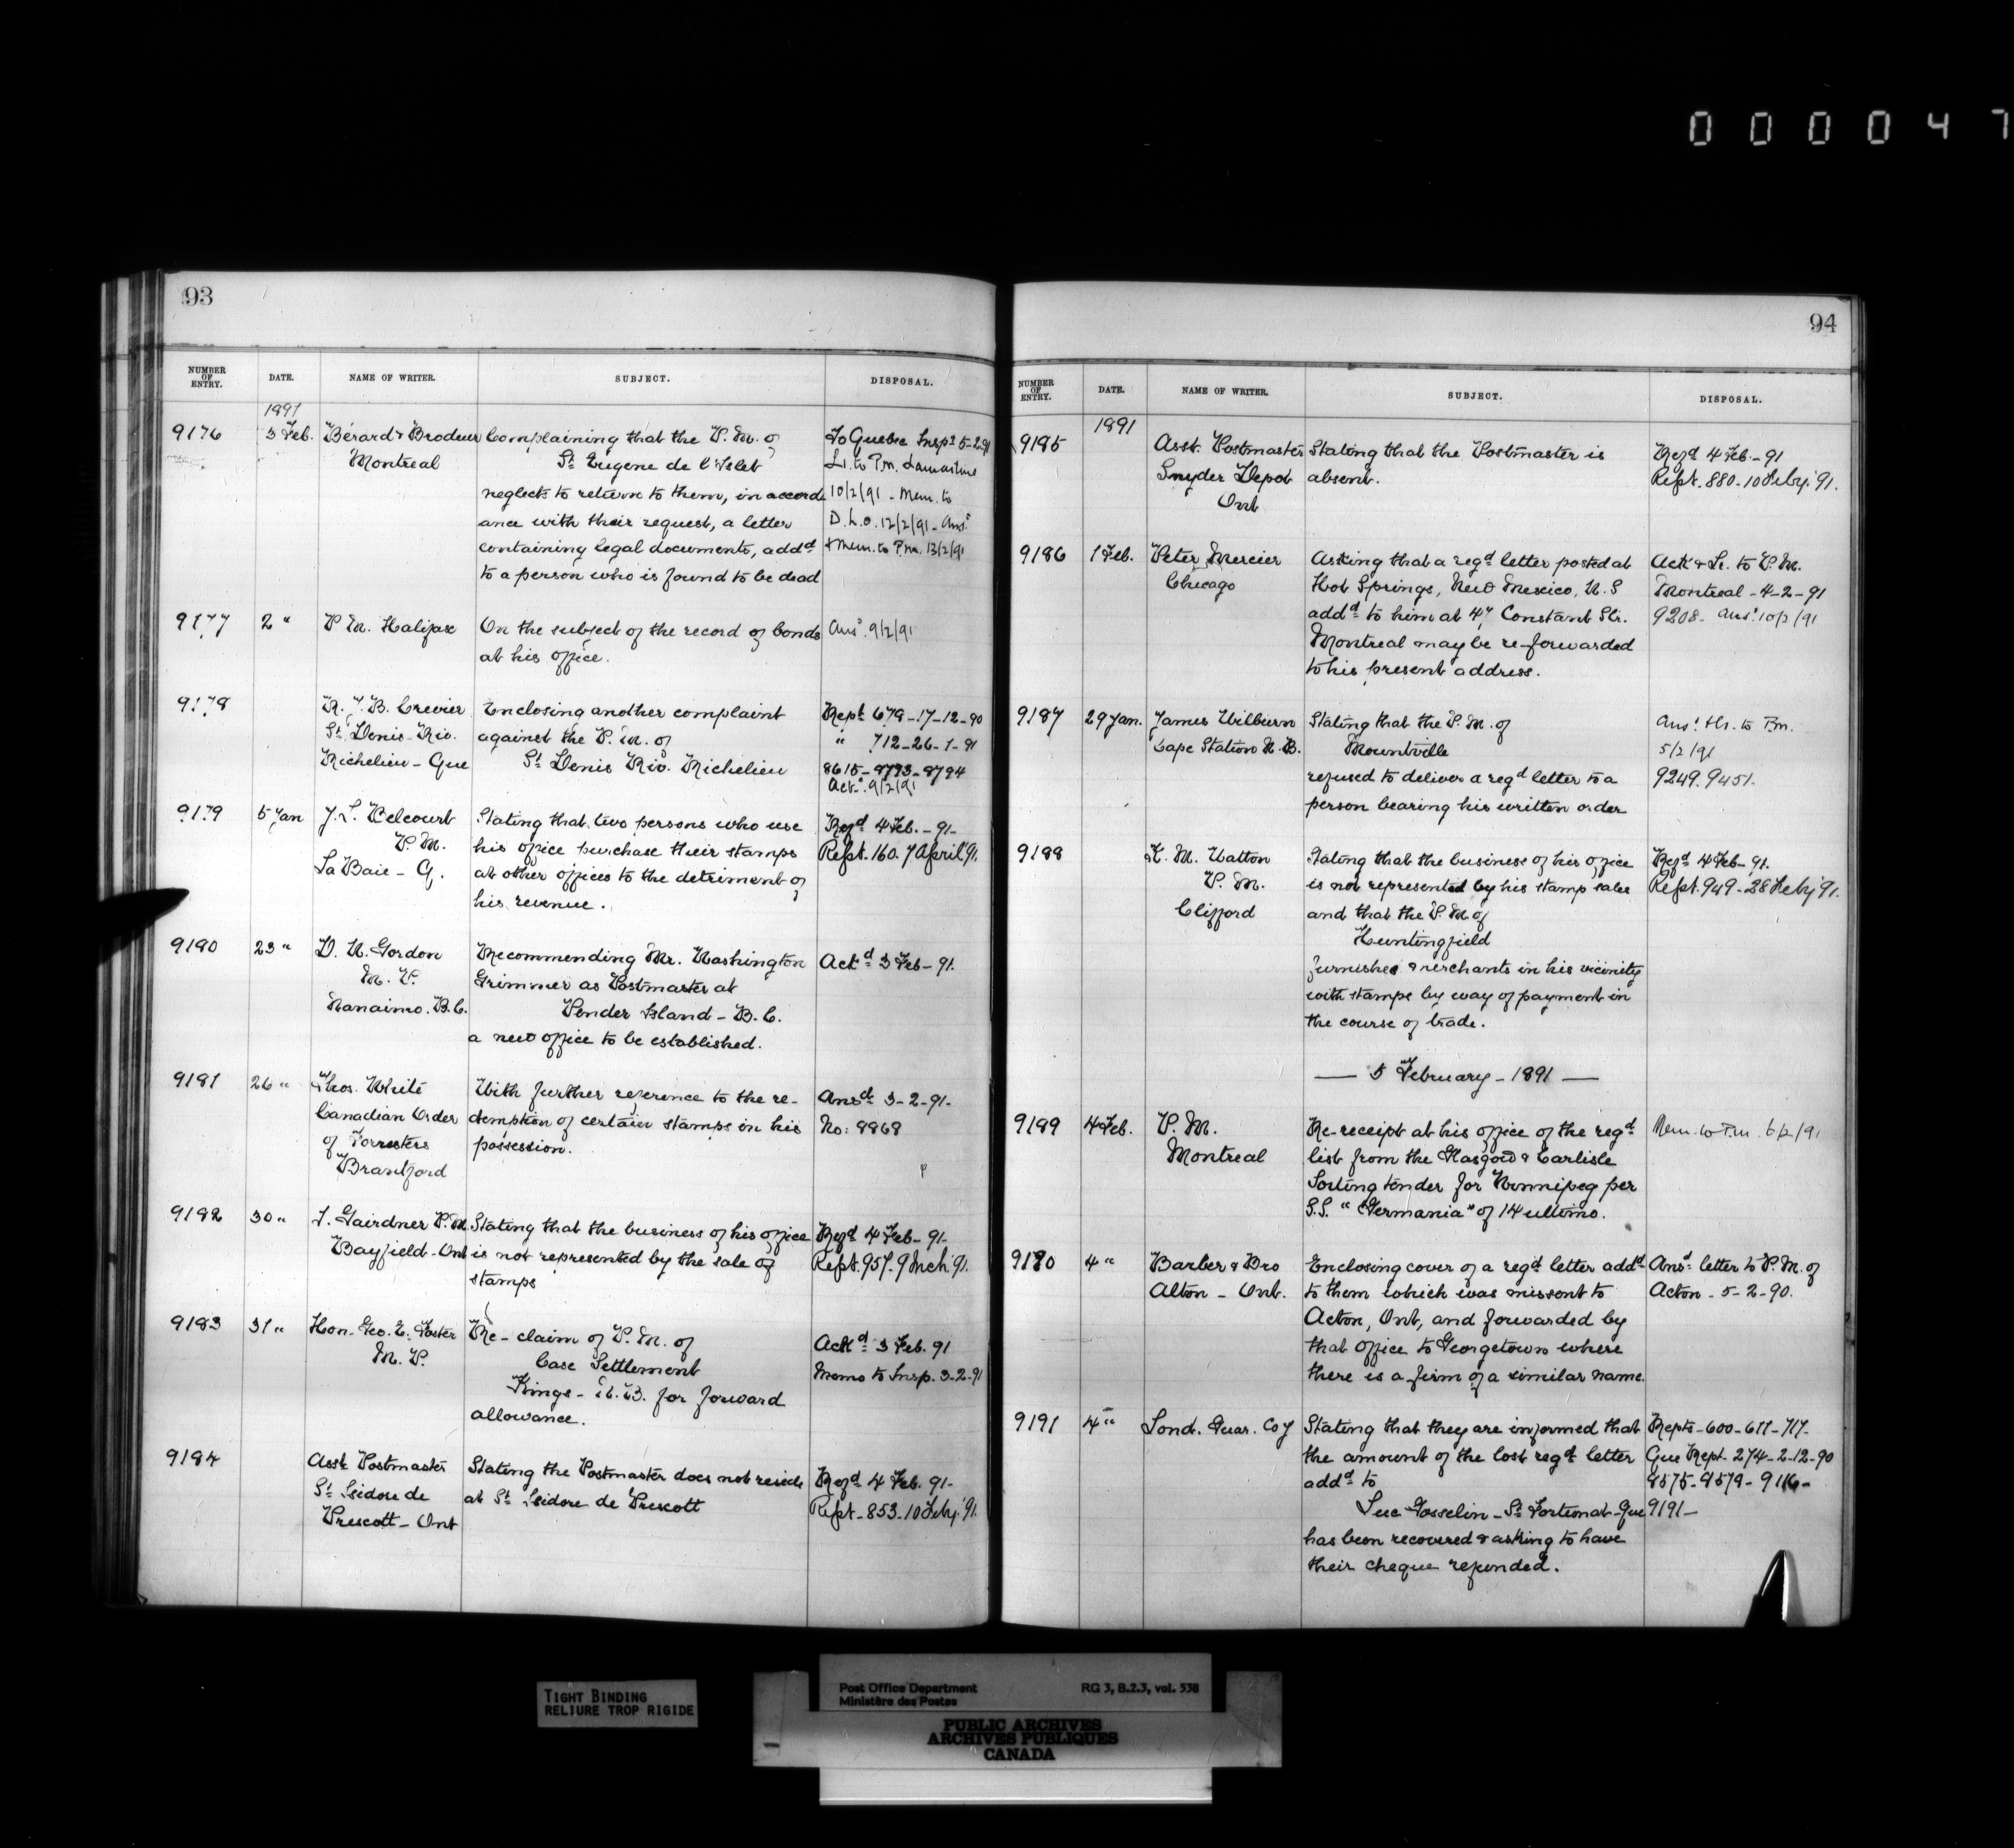 000047
93
NUMBER OF ENTRY. DATE. NAME OF WRITER. SUBJECT. DISPOSAL.
1891
9176 3 Feb. Bérard & Brodeur Complaining that the P.M. of To Quebec Inspr 5-2-91
Montreal St. Eugene de l'Islet Lr. to P.m. Lamartine
neglects to return to them, in accord- 10/2/91 - Mem. to
ance with their request, a letter D.L.O. 12/2/91 - Ansd
containing legal documents, addd & Mem. to P.m. 13/2/91
to a person who is found to be dead
9177 2 " P.M. Halifax On the subject of the record of bonds Ansd. 9/2/91
at his office.
9178 R. J. B. Crevier Enclosing another complaint Rept 679-17-12-90
St. Denis - Riv. against the P.M. of " 712-26-1-91
Richelieu - Que St. Denis Riv. Richelieu 8615-8793-8794
Ack. 9/2/91
9179 5 Jan J. L. Belcourt Stating that two persons who use Refd 4 Feb. - 91-
P.M. his office purchase their stamps Rept. 160. 7 April '91.
La Baie - Q. at other offices to the detriment of
his revenue.
9180 23 " D. W. Gordon Recommending Mr. Washington Ackd 3 Feb - 91.
M.P. Grimmer as Postmaster at
Nanaimo. B.C. Pender Island - B.C.
a new office to be established.
9181 26 " Thos. White With further reference to the re- Ansd 3-2-91-
Canadian Order demption of certain stamps in his No: 8868
of Forresters possession.
Brantford
9182 30 " J. Gairdner P.M. Stating that the business of his office Refd 4 Feb - 91-
Bayfield - Ont is not represented by the sale of Rept. 957. 9 Mch '91.
stamps
9183 31 " Hon. Geo. E. Foster Re - claim of P.M. of Ackd 3 Feb. 91
M.P. Case Settlement Memo to Insp. 3-2-91
Kings - N.B. for forward
allowance.
9184 Asst Postmaster Stating the Postmaster does not reside Refd 4 Feb. 91-
St. Isidore de at St. Isidore de Prescott Rept - 853 - 10 Feby. '91.
Prescott - Ont
94
NUMBER OF ENTRY. DATE. NAME OF WRITER. SUBJECT. DISPOSAL.
1891
9185 Asst. Postmaster Stating that the Postmaster is Refd 4 Feb. - 91
Snyder Depot absent. Rept. 880 - 10 Feby. '91.
Ont
9186 1 Feb. Peter Mercier Asking that a regd letter posted at Ack & Lr. to P.M.
Chicago Hot Springs, New Mexico, U.S Montreal - 4-2-91
addd to him at 47 Constant Str. 9208. Ansd 10/2/91
Montreal may be re-forwarded
to his present address.
9187 29 Jan. James Wilburn Stating that the P.M. of Ansd. & Lr. to P.m.
Cape Station N.B. Mountville 5/2/91
refused to deliver a regd letter to a 9249. 9451.
person bearing his written order
9188 Watton Stating that the business of his office Refd 4 Feb - 91.
P.M. is not represented by his stamp sales Rept. 949 - 28 Feby '91.
Clifford and that the P.M. of
Huntingfield
furnishes merchants in his vicinity
with stamps by way of payment in
the course of trade.
— 5 February - 1891 —
9189 4 Feb. P.M. Re-receipt at his office of the regd Mem. to P.m. 6/2/91
Montreal list from the Glasgow & Carlisle
Sorting tender for Winnipeg per
S.S. "Germania" of 14 ultimo.
9190 4 " Barber & Bro Enclosing cover of a regd letter addd Ansd letter to P.M. of
Alton - Ont. to them which was missent to Acton - 5-2-90.
Acton, Ont, and forwarded by
that office to Georgetown where
there is a firm of a similar name.
9191 4 " Lond. Guar. Coy Stating that they are informed that Repts - 600 - 677 - 717-
the amount of the lost regd letter Que Rept. 274-2-12-90
addd to 8575-8578-9116-
Luc Gosselin - St. Fortunat - Que 9191-
has been recovered & asking to have
their cheque refunded.
TIGHT BINDING
RELIURE TROP RIGIDE
Post Office Department RG 3, B.2.3, vol. 538
Ministère des Postes
PUBLIC ARCHIVES
ARCHIVES PUBLIQUES
CANADA